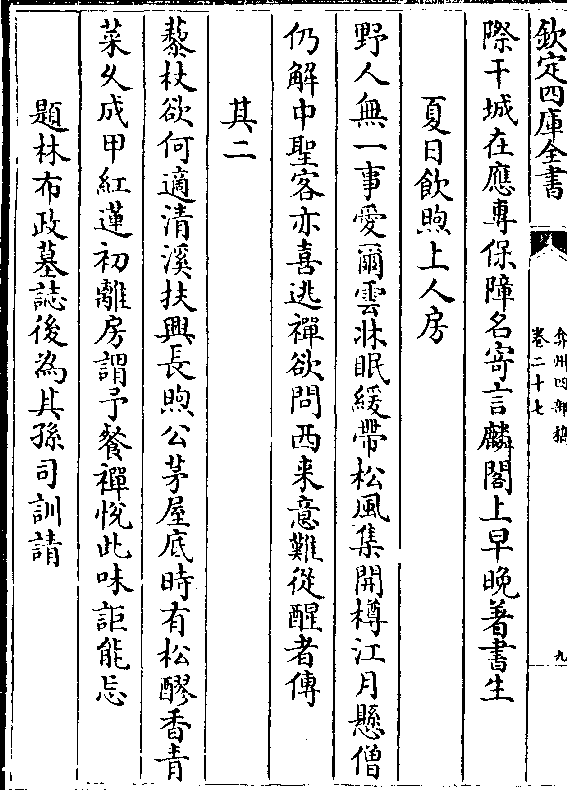 欽定四庫全書
弇州四部稿
卷二十七
九
際干城在應專保障名寄言麟閣上早晚著書生
夏日飲煦上人房
野人無一事愛爾雲牀眠緩帶松風集開樽江月懸僧
仍解中聖客亦喜逃禪欲問西来意難從醒者傳
其二
藜杖欲何適清溪扶興長煦公茅屋底時有松醪香青
菜乆成甲紅蓮初離房謂予餐禪悅此味詎能忘
題林布政墓誌後為其孫司訓請